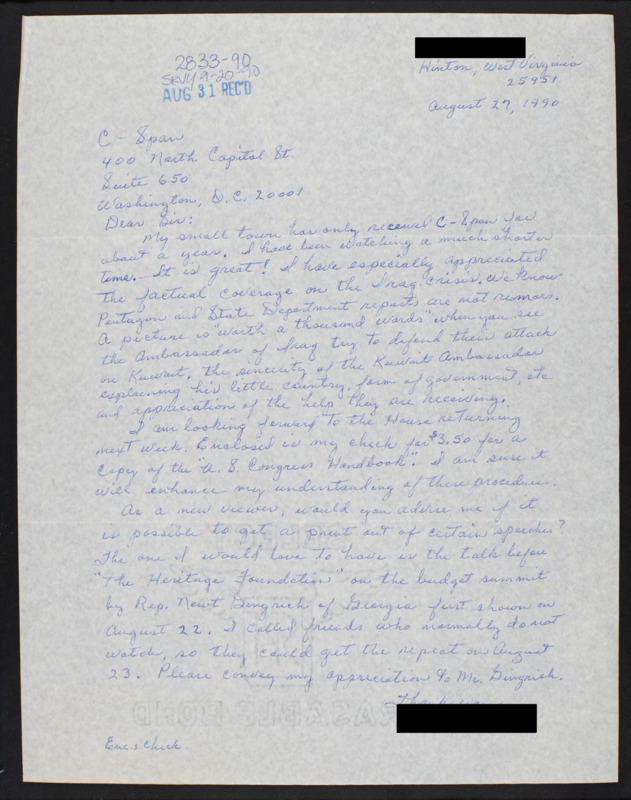 2833-90
SKVY 9-20-90
AUG 31 REC'D
Hinton, West Virginia
25951
August 27, 1990
C-Span
400 North Capitol St.
Suite 650
Washington, D.C. 20001
Dear Sir:
My small town has only received C-Span for
about a year. I have been watching a much shorter
time. It is great! I have especially appreciated
the factual coverage on the Iraq crisis. We know
Pentagon and State Department reports are not rumors.
A picture is "worth a thousand words" when you see
the Ambassador of Iraq try to defend their attack
on Kuwait, the sincerity of the Kuwait Ambassador
explaining his little country, form of government, etc
and appreciation of the help they are receiving.
I am looking forward to the House returning
next week. Enclosed is my check for $3.50 for a
copy of the "U.S. Congress Handbook". I am sure it
will enhance my understanding of these procedures.
As a new viewer, would you advise me if it
is possible to get a print out of certain speeches?
The one I would love to have is the talk before
"The Heritage Foundation" on the budget summit
by Rep. Newt Gingrich of Georgia first shown on
August 22. I called friends who normally do not
watch, so they could get the repeat on August
23. Please convey my appreciation to Mr. Gingrich.
Enc: check